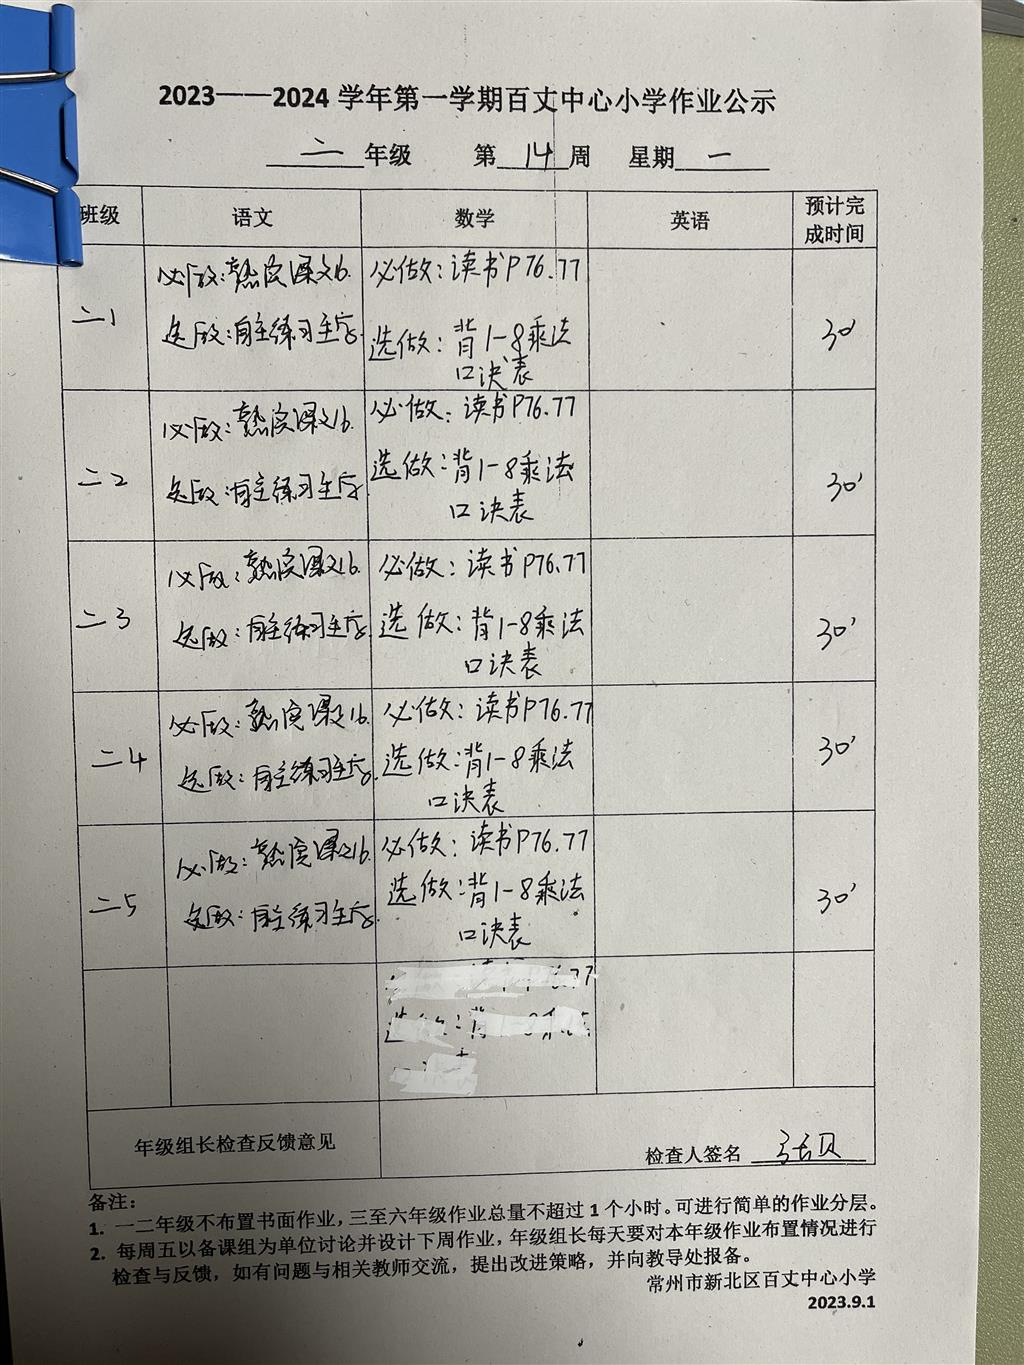 2023——2024 学年第一学期百丈中心小学作业公示
二 年级 第 14 周 星期 一
班级 语文 数学 英语 预计完成时间
二1
必做:熟读课文16.
选做:自主练习生字.
必做:读书P76.77
选做:背1-8乘法
口决表
30'
二2
必做:熟读课文16.
选做:自主练习生字
必做:读书P76.77
选做:背1-8乘法
口决表
30'
二3
必做:熟读课文16.
选做:自主练习生字
必做:读书P76.77
选做:背1-8乘法
口决表
30'
二4
必做:熟读课文16.
选做:自主练习生字.
必做:读书P76.77
选做:背1-8乘法
口决表
30'
二5
必做:熟读课文16.
选做:自主练习生字
必做:读书P76.77
选做:背1-8乘法
口决表
30'
年级组长检查反馈意见
检查人签名 张贝
备注:
1. 一二年级不布置书面作业，三至六年级作业总量不超过 1 个小时。可进行简单的作业分层。
2. 每周五以备课组为单位讨论并设计下周作业，年级组长每天要对本年级作业布置情况进行
检查与反馈，如有问题与相关教师交流，提出改进策略，并向教导处报备。
常州市新北区百丈中心小学
2023.9.1